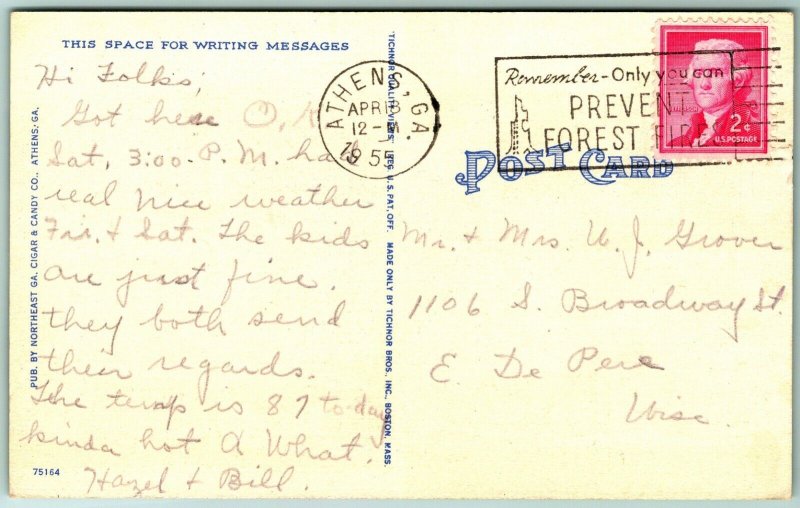 THIS SPACE FOR WRITING MESSAGES
Hi Folks,
Got here O.K.
Sat, 3:00 P.M. had
real nice weather
Fri. & Sat. The kids
are just fine.
they both send
their regards.
The temp is 87 to-day
kinda hot a What.
Hazel & Bill.
75164
PUB. BY NORTHEAST GA. CIGAR & CANDY CO., ATHENS, GA.
TICHNOR QUALITY VIEWS, REG. U. S. PAT. OFF. MADE ONLY BY TICHNOR BROS. INC., BOSTON, MASS.
ATHENS, GA.
APR 18
12-M
1955
Remember-Only you can
PREVENT
FOREST FIRES
2¢
U.S. POSTAGE
POST CARD
Mr. & Mrs. W. J. Grover
1106 S. Broadway St.
E. De Pere
Wisc.